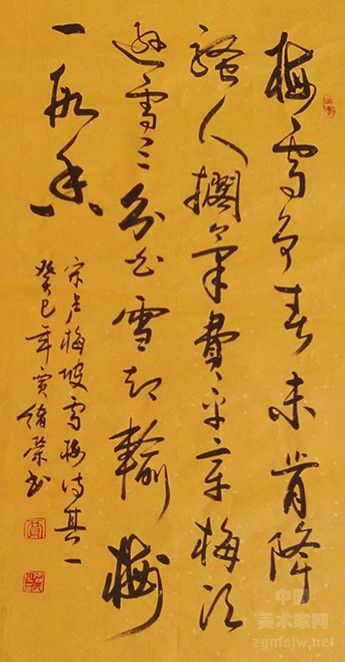 梅雪争春未肯降
骚人擱笔費平章梅须
逊雪三分白雪却輸梅
一段香
宋卢梅坡雪梅诗其一
癸巳年绪荣书
中国
美术家网
zgmsjw.net